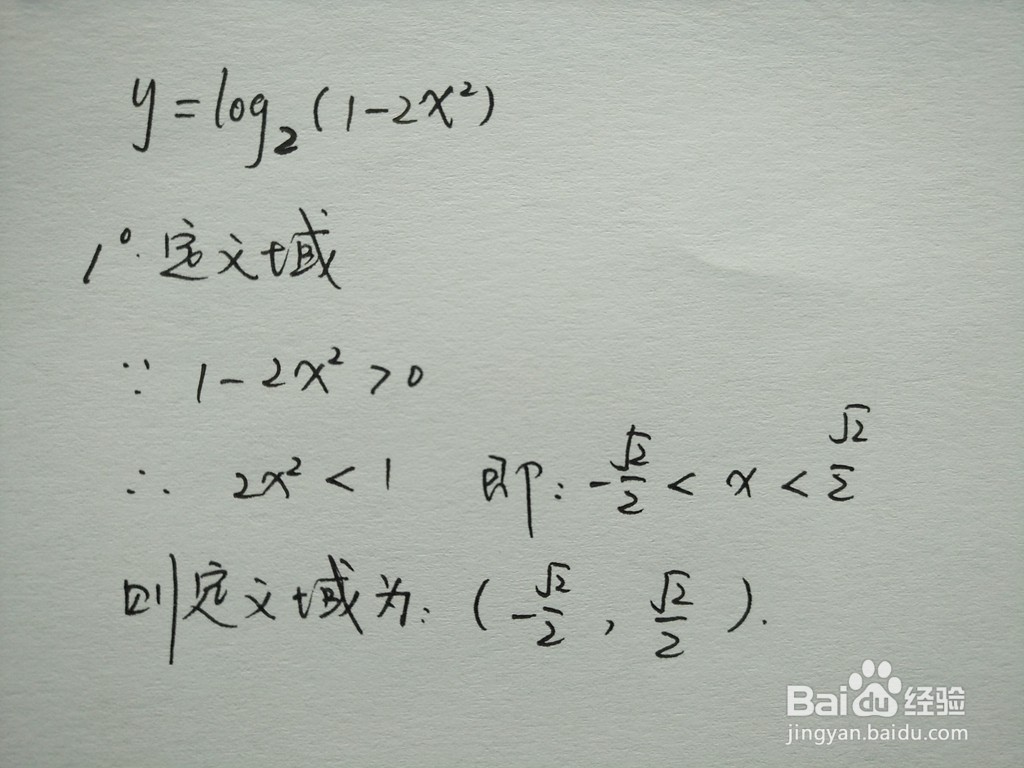 y=log₂(1-2x²)
1°.定义域
∵ 1-2x²>0
∴ 2x²<1 即:-√2/2<x<√2/2
则定义域为:(-√2/2,√2/2).
Baidu经验
jingyan.baidu.com